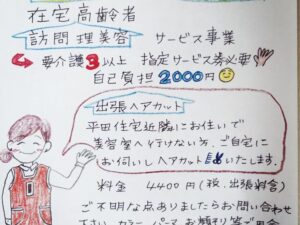 在宅高齢者
訪問理美容 サービス事業
要介護3以上 指定サービス券必要
自己負担2000円
出張ヘアカット
平田住宅近隣にお住いで
美容室へ行けない方、ご自宅に
お伺いしヘアカットいたします。
料金 4400円(税、出張料含)
ご不明な点ありましたらお問い合わせ
下さい。カラー、パーマ、お顔剃り等